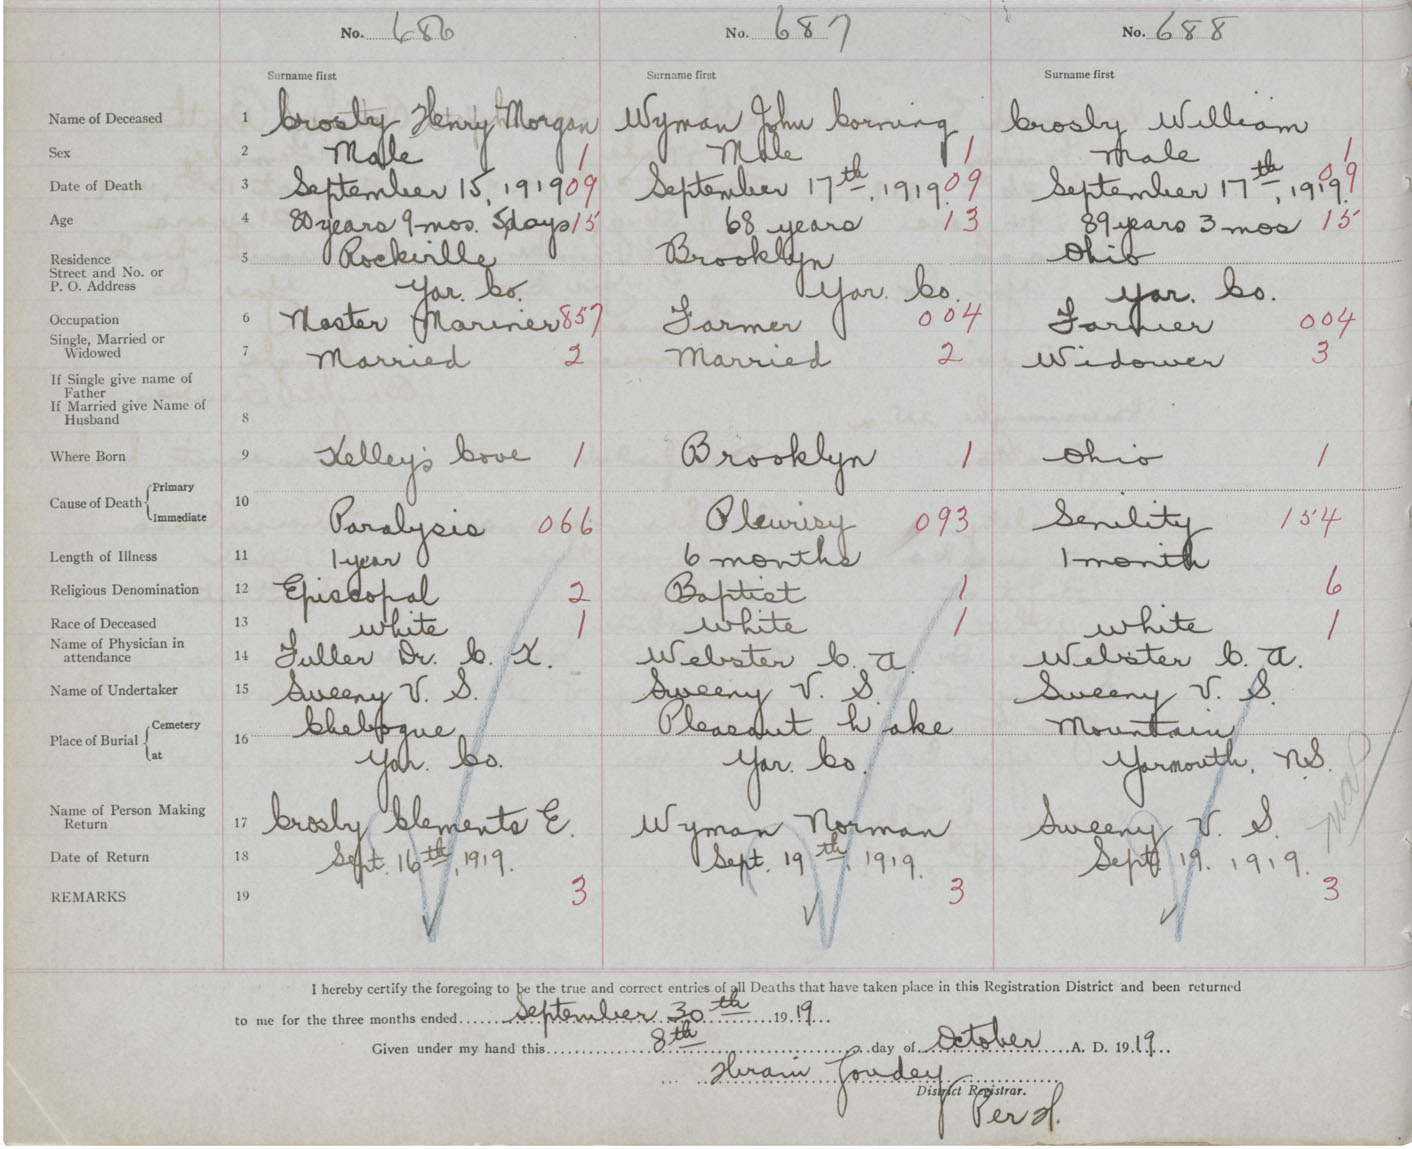 No. 686 No. 687 No. 688
Surname first Surname first Surname first
Name of Deceased 1 Crosby Henry Morgan Wyman John Corning Crosby William
Sex 2 Male 1 Male 1 Male 1
Date of Death 3 September 15, 1919 09 September 17th, 1919. 09 September 17th, 1919. 09
Age 4 80 years 9 mos. 5 days 15 68 years 13 89 years 3 mos 15
Residence 5 Rockville Brooklyn Ohio
Street and No. or
P. O. Address Yar. Co. Yar. Co. Yar. Co.
Occupation 6 Master Mariner 857 Farmer 004 Farmer 004
Single, Married or
Widowed 7 Married 2 Married 2 Widower 3
If Single give name of
Father
If Married give Name of
Husband 8
Where Born 9 Kelley's Cove 1 Brooklyn 1 Ohio 1
Cause of Death { Primary 10
Immediate Paralysis 066 Pleurisy 093 Senility 154
Length of Illness 11 1 year 6 months 1 month
Religious Denomination 12 Episcopal 2 Baptist 1 6
Race of Deceased 13 White 1 White 1 White 1
Name of Physician in
attendance 14 Fuller Dr. C. K. Webster C. A. Webster C. A.
Name of Undertaker 15 Sweeny V. S. Sweeny V. S. Sweeny V. S.
Place of Burial { Cemetery 16 Chebogue Pleasant Lake Mountain
at Yar. Co. Yar. Co. Yarmouth, N.S.
Name of Person Making
Return 17 Crosby Clements E. Wyman Norman Sweeny V. S.
Date of Return 18 Sept. 16th, 1919. Sept. 19th, 1919. Sept. 19. 1919.
REMARKS 19 3 3 3
I hereby certify the foregoing to be the true and correct entries of all Deaths that have taken place in this Registration District and been returned
to me for the three months ended September 30th 1919
Given under my hand this 8th day of October A. D. 1919
Hiram Goudey
District Registrar.
Per H.